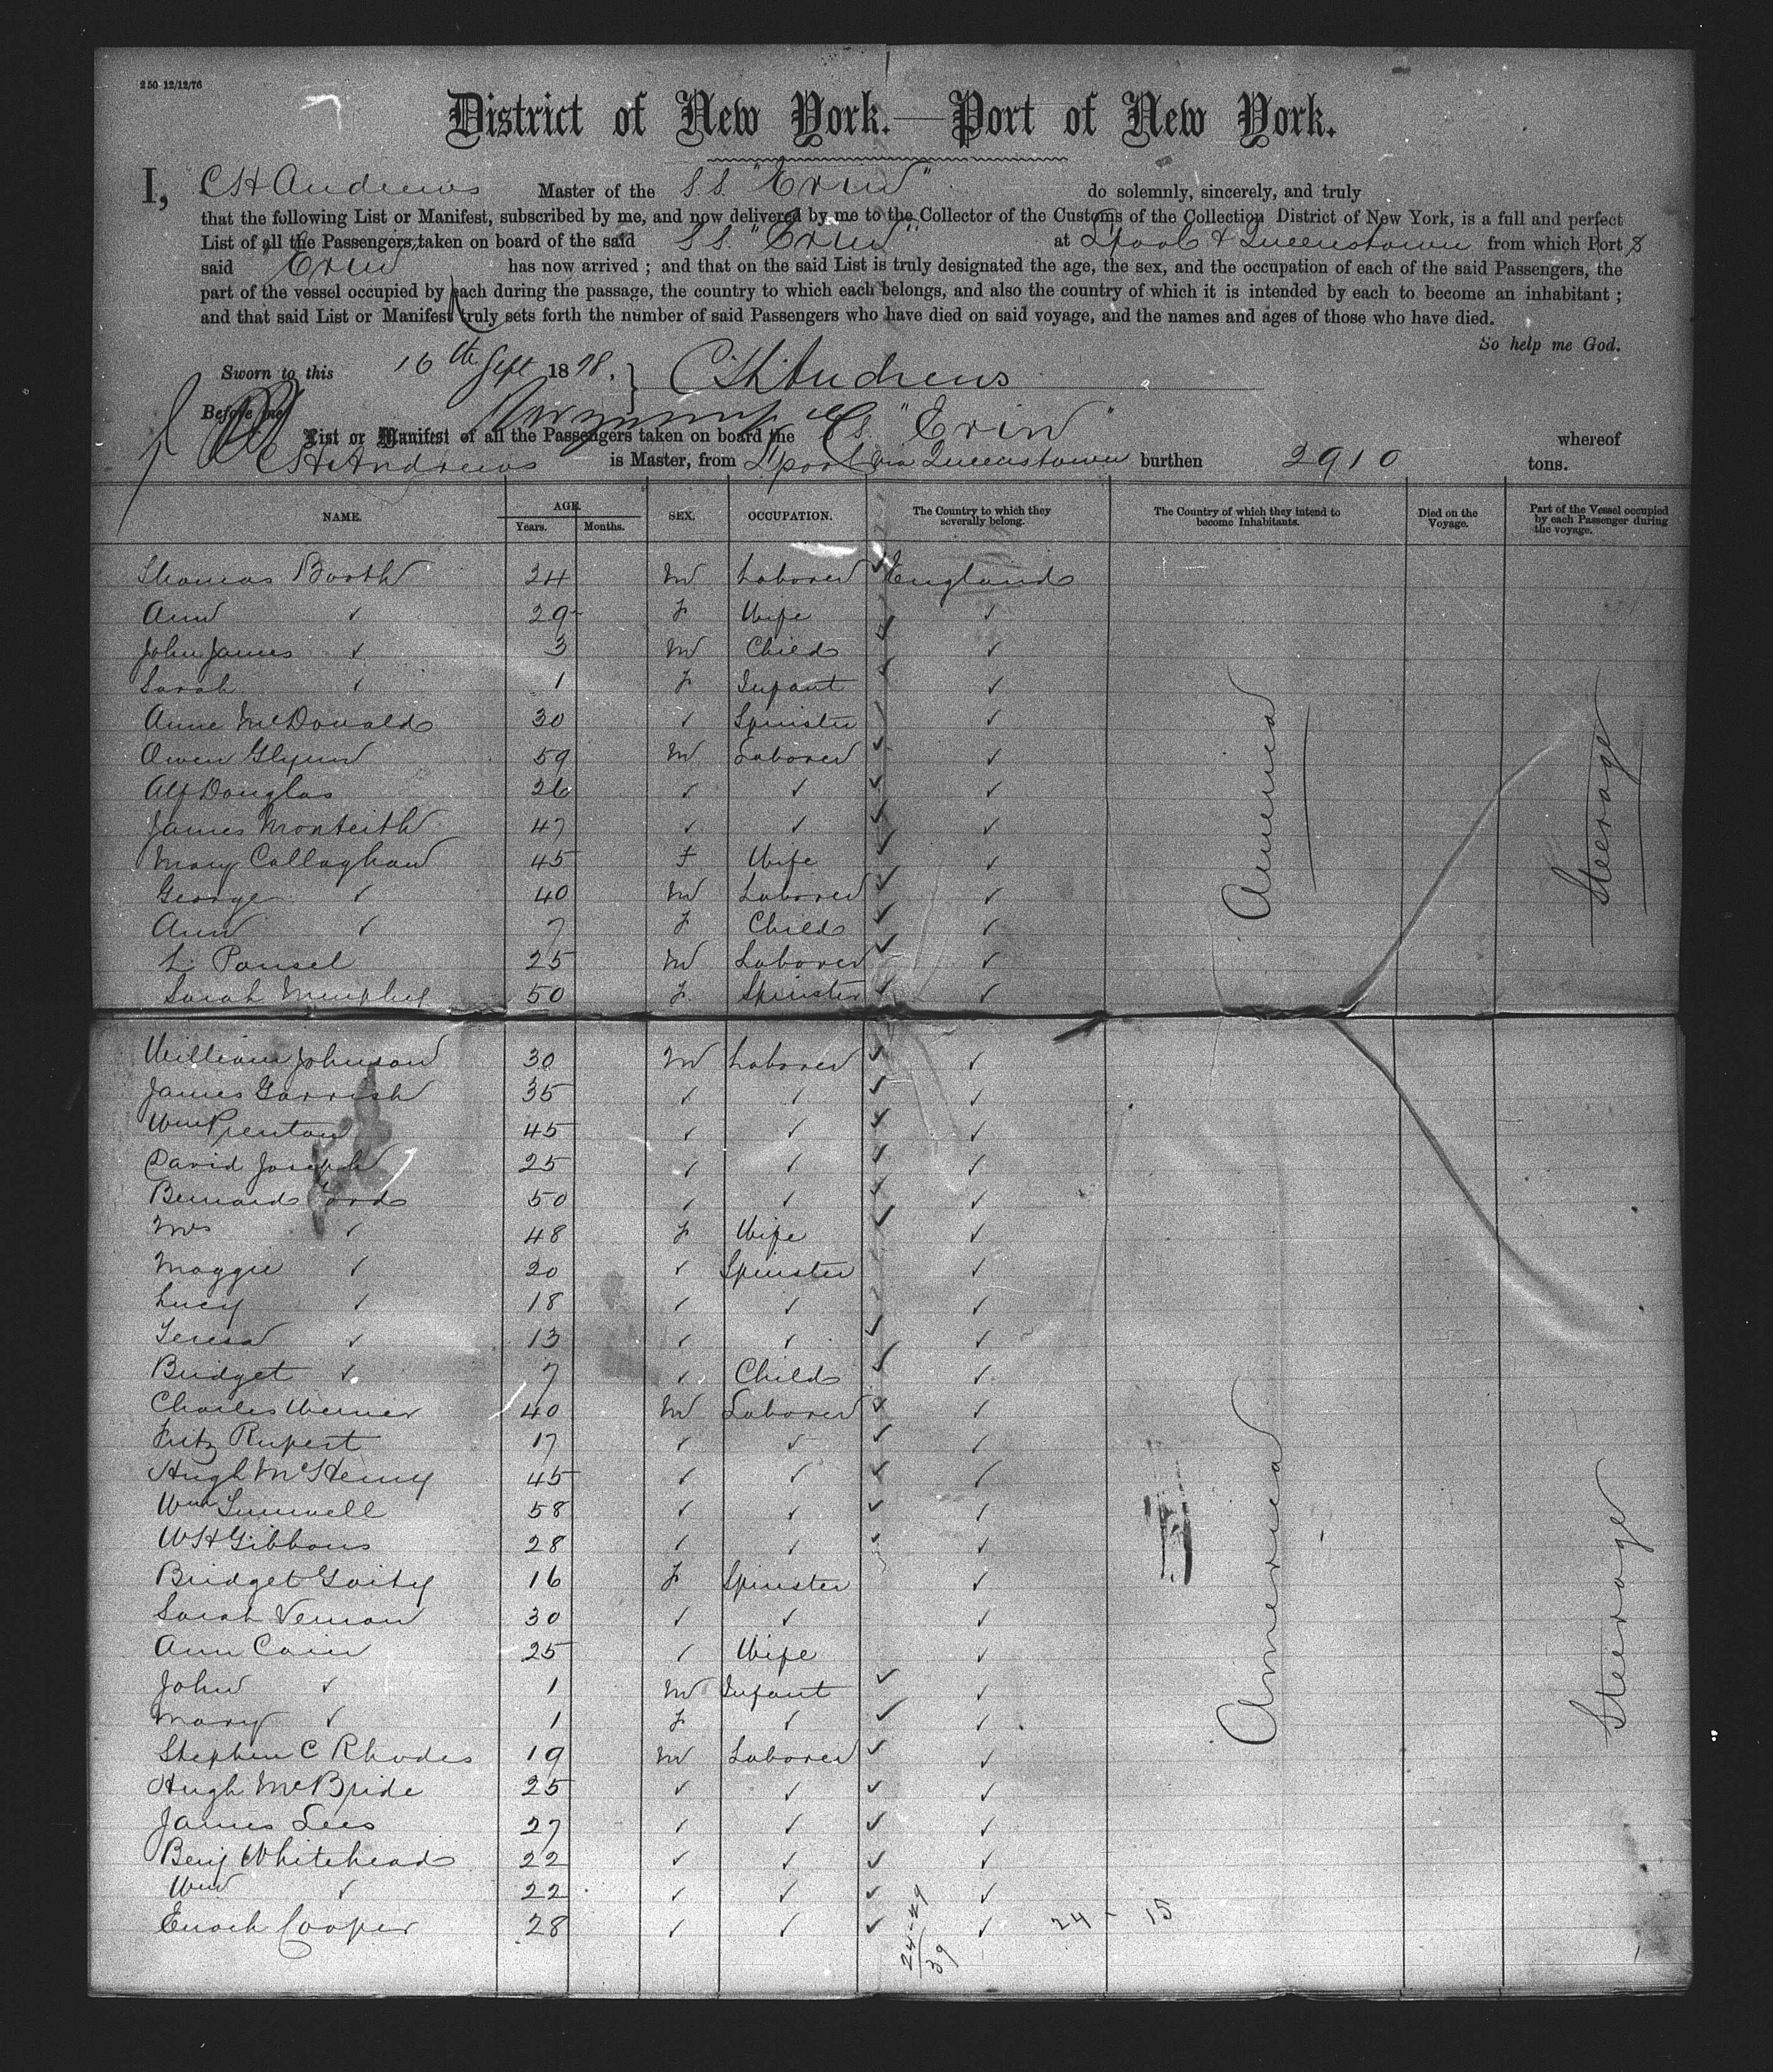 250 12/12/76
District of New York.—Port of New York.
I, C H Andrews Master of the S.S. "Erin" do solemnly, sincerely, and truly
that the following List or Manifest, subscribed by me, and now delivered by me to the Collector of the Customs of the Collection District of New York, is a full and perfect
List of all the Passengers taken on board of the said S.S. "Erin" at Lpool & Queenstown from which Port
said "Erin" has now arrived ; and that on the said List is truly designated the age, the sex, and the occupation of each of the said Passengers, the
part of the vessel occupied by each during the passage, the country to which each belongs, and also the country of which it is intended by each to become an inhabitant ;
and that said List or Manifest truly sets forth the number of said Passengers who have died on said voyage, and the names and ages of those who have died.
So help me God.
Sworn to this 16th Sept 1878. } C H Andrews
Before me
List or Manifest of all the Passengers taken on board the SS. "Erin" whereof
C H Andrews is Master, from Lpool via Queenstown burthen 2910 tons.
NAME. AGE. Years. Months. SEX. OCCUPATION. The Country to which they severally belong. The Country of which they intend to become Inhabitants. Died on the Voyage. Part of the Vessel occupied by each Passenger during the voyage.
Thomas Booth 24 M Laborer ✓ England
Ann ✓ 29 F Wife ✓ ✓
John James ✓ 3 M Child ✓ ✓
Sarah ✓ 1 F Infant ✓ ✓
Anne McDonald 30 ✓ Spinster ✓ ✓
Owen Glynn 59 M Laborer ✓ ✓
Alf Douglas 26 ✓ ✓ ✓ ✓
James Monteith 47 ✓ ✓ ✓ ✓
Mary Callaghan 45 F Wife ✓ ✓
George ✓ 40 M Laborer ✓ ✓
Ann ✓ 7 F Child ✓ ✓
L. Pansel 25 M Laborer ✓ ✓
Sarah Murphy 50 F. Spinster ✓ ✓
America
Steerage
William Johnson 30 M Laborer ✓ ✓
James Garrish 35 ✓ ✓ ✓ ✓
Wm Prenton 45 ✓ ✓ ✓ ✓
David Joseph 25 ✓ ✓ ✓ ✓
Bernard Ford 50 ✓ ✓ ✓ ✓
Mrs ✓ 48 F Wife ✓ ✓
Maggie ✓ 20 ✓ Spinster ✓
Lucy ✓ 18 ✓ ✓ ✓ ✓
Teresa ✓ 13 ✓ ✓ ✓ ✓
Bridget ✓ 7 ✓ Child ✓ ✓
Charles Werner 40 M Laborer ✓ ✓
Fritz Rupert 17 ✓ ✓ ✓ ✓
Hugh McHenry 45 ✓ ✓ ✓ ✓
Wm 58 ✓ ✓ ✓ ✓
W H Gibbons 28 ✓ ✓ ✓ ✓
Bridget Gaity 16 F Spinster ✓
Sarah Vernon 30 ✓ ✓ ✓
Ann Cain 25 ✓ Wife ✓
John ✓ 1 M Infant ✓ ✓
Mary ✓ 1 F ✓ ✓ ✓
Stephen C Rhodes 19 M Laborer ✓ ✓
Hugh McBride 25 ✓ ✓ ✓ ✓
James Lees 27 ✓ ✓ ✓ ✓
Benj Whitehead 22 ✓ ✓ ✓ ✓
Wm ✓ 22 ✓ ✓ ✓ ✓
Enoch Cooper 28 ✓ ✓ ✓ ✓ 24 - 15
America
Steerage
39